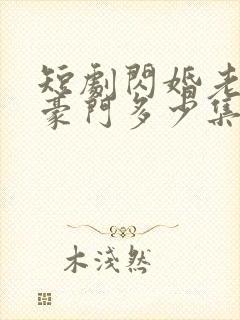 短劇閃婚老
豪門多少集
木淺然